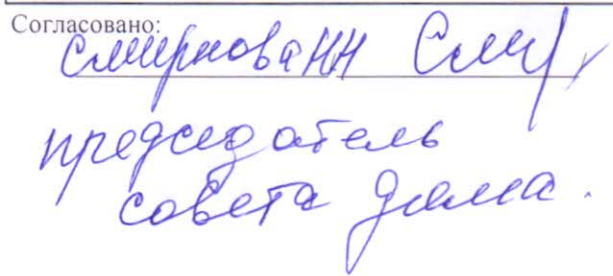 Согласовано:
Смирнова НН Сми
председатель
совета дома.